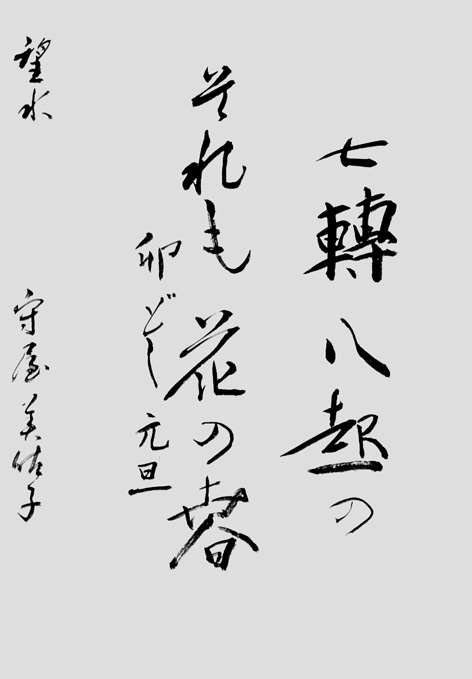 七轉八起の
それも花の春
卯どし元旦
望水 守屋美佐子